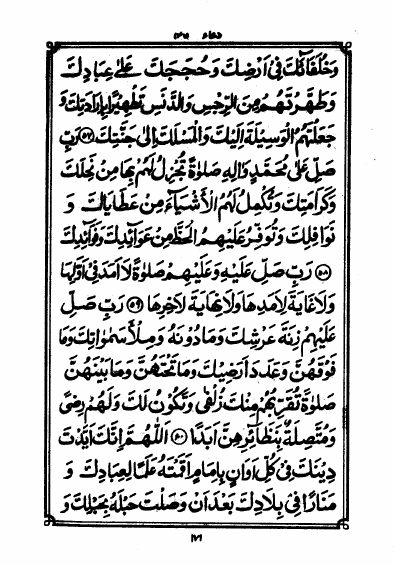 دعاء ۴۷
وَخُلَفَآئَكَ فِیْ اَرْضِكَ وَحُجَجَكَ عَلٰی عِبَادِكَ
وَطَهَّرْتَهُمْ مِنَ الرِّجْسِ وَالدَّنَسِ تَطْهِیْرًا بِاِرَادَتِكَ وَ
جَعَلْتَهُمُ الْوَسِیْلَةَ اِلَیْكَ وَالْمَسْلَكَ اِلٰی جَنَّتِكَ ۵۷ رَبِّ
صَلِّ عَلٰی مُحَمَّدٍ وَاٰلِهٖ صَلٰوةً تُجْزِلُ لَهُمْ بِهَا مِنْ نِحَلِكَ
وَكَرَامَتِكَ وَتُكْمِلُ لَهُمُ الْاَشْیَآءَ مِنْ عَطَایَاكَ وَ
نَوَافِلِكَ وَتُوَفِّرُ عَلَیْهِمُ الْحَظَّ مِنْ عَوَآئِدِكَ وَفَوَآئِدِكَ
۵۸ رَبِّ صَلِّ عَلَیْهِ وَعَلَیْهِمْ صَلٰوةً لَا اَمَدَ فِیْ اَوَّلِهَا
وَلَا غَایَةَ لِاَمَدِهَا وَلَا نِهَایَةَ لِاٰخِرِهَا ۵۹ رَبِّ صَلِّ
عَلَیْهِمْ زِنَةَ عَرْشِكَ وَمَا دُوْنَهُ وَمِلْأَ سَمٰوَاتِكَ وَمَا
فَوْقَهُنَّ وَعَدَدَ اَرَضِیْكَ وَمَا تَحْتَهُنَّ وَمَا بَیْنَهُنَّ
صَلٰوةً تُقَرِّبُهُمْ مِنْكَ زُلْفٰی وَتَكُوْنُ لَكَ وَلَهُمْ رِضًی
وَمُتَّصِلَةً بِنَظَآئِرِهِنَّ اَبَدًا ۶۰ اَللّٰهُمَّ اِنَّكَ اَیَّدْتَ
دِیْنَكَ فِیْ كُلِّ اَوَانٍ بِاِمَامٍ اَقَمْتَهُ عَلَمًا لِعِبَادِكَ وَ
مَنَارًا فِیْ بِلَادِكَ بَعْدَ اَنْ وَصَلْتَ حَبْلَهُ بِحَبْلِكَ وَ
۱۷۱